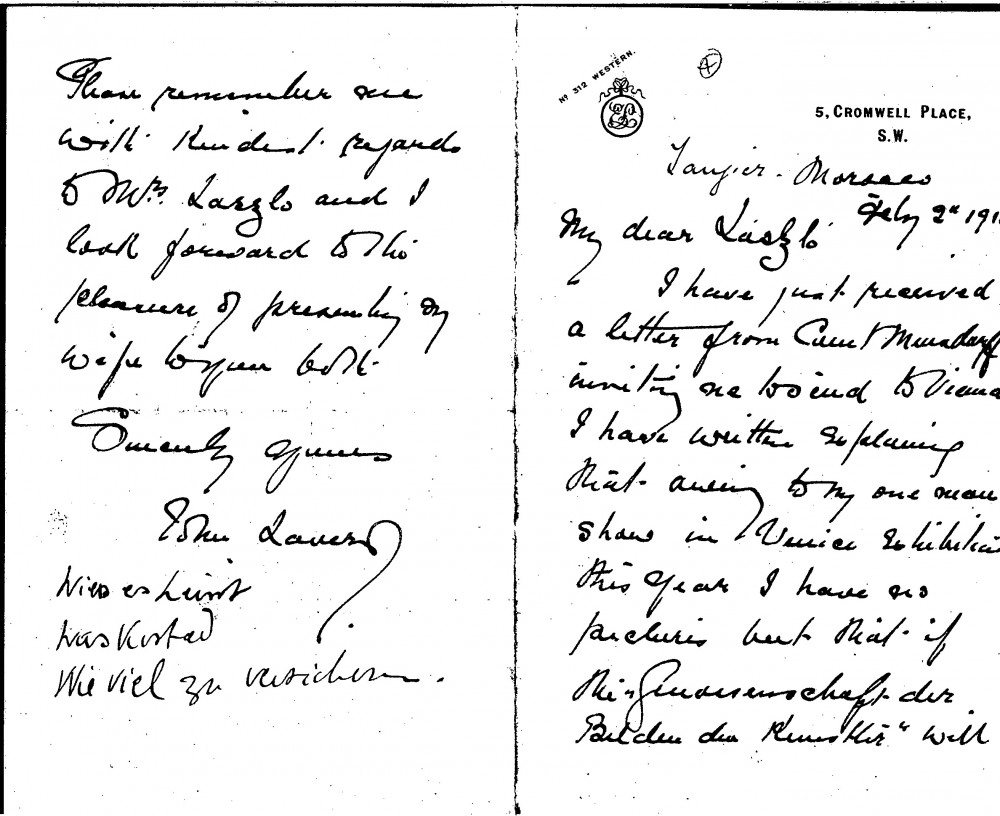 Please remember me
with kindest regards
to Mrs. Laszlo and I
look forward to the
pleasure of presenting my
wife to you both
Sincerely yours
John Lavery
was kostet
Wie viel zu versichern.
No 312 WESTERN.
5, CROMWELL PLACE,
S.W.
Tangier. Morocco
Feby 2d 191
My dear László
I have just received
a letter from Count
inviting me to send to Vienna
I have written explaining
that owing to my one man
show in Venice Exhibition
this year I have no
pictures but that if
the "Genossenschaft der
Bildenden Künstler" will